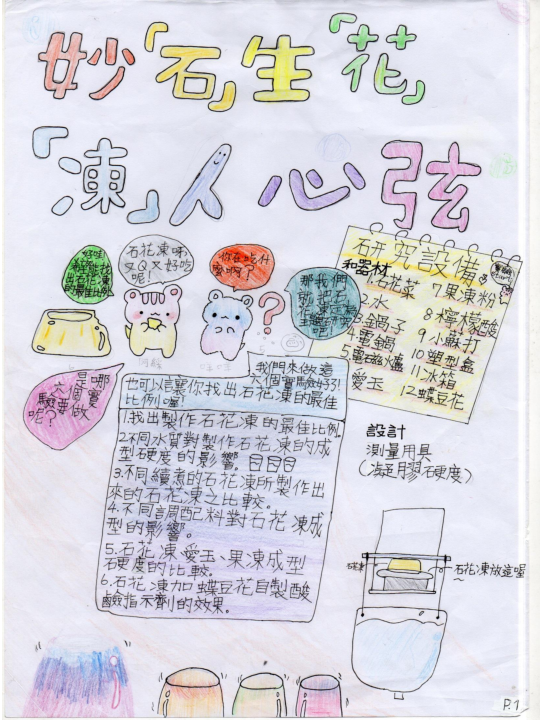 妙「石」生「花」
「凍」人心弦
石花凍味
又Q又好吃
呢!
你在吃什
麼啊?
?
那我們
研究設備
和器材
1.石花菜
2.水
3.鍋子
4.電鍋
5.電磁爐
6.愛玉
7.果凍粉
8.檸檬酸
9.小蘇打
10.塑型盒
11.冰箱
12.蝶豆花
是哪
六個實
驗要做
呢?
我們來做這
六個實驗好了!
也可以讓你找出石花凍的最佳
比例喔!
1.找出製作石花凍的最佳比例。
2.不同水質對製作石花凍的成
型硬度的影響。
3.不同續煮的石花凍所製作出
來的石花凍之比較。
4.不同調配料對石花凍成
型的影響。
5.石花凍、愛玉、果凍成型
硬度的比較。
6.石花凍加蝶豆花自製酸
鹼指示劑的效果。
設計
測量用具
(凝膠硬度)
石花凍放這喔
~
P.1